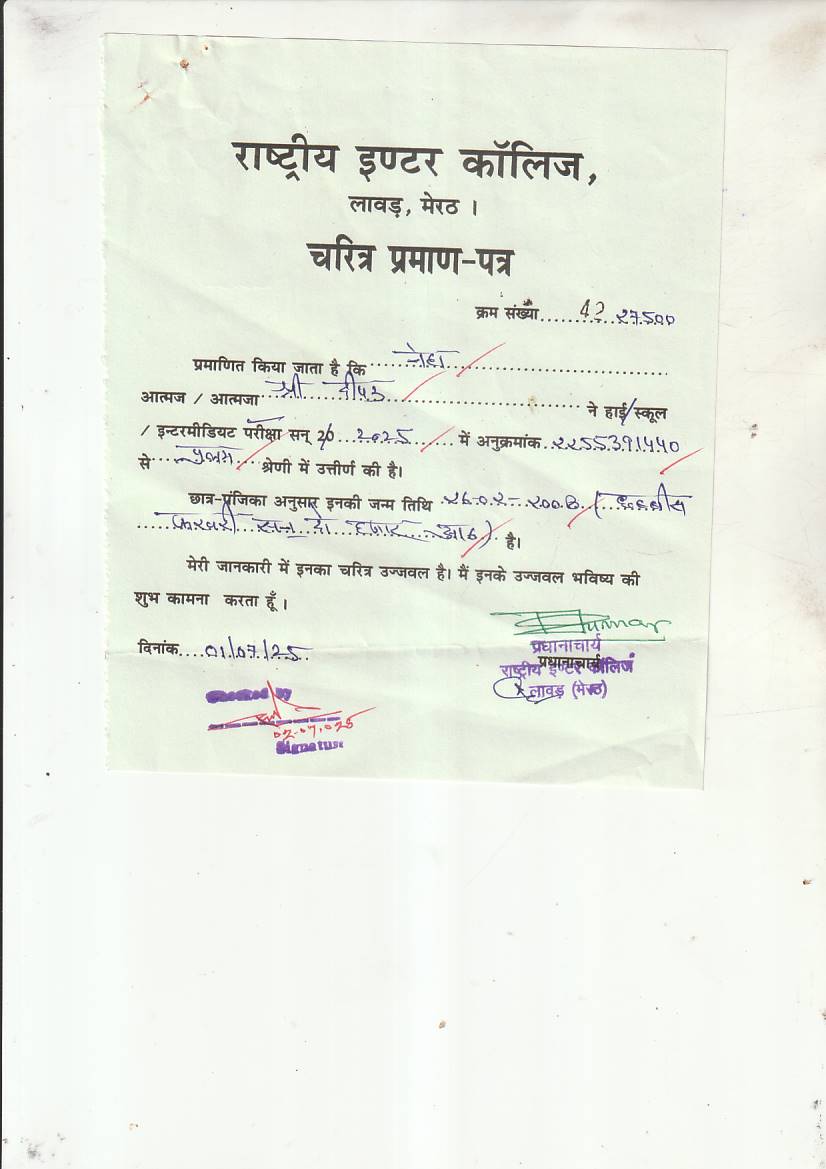 राष्ट्रीय इण्टर कॉलिज,
लावड़, मेरठ ।
चरित्र प्रमाण-पत्र
क्रम संख्या.........42 २७५००
प्रमाणित किया जाता है कि नेहा
आत्मज / आत्मजा श्री दीपक ने हाई/स्कूल
/ इन्टरमीडियट परीक्षा सन् 20 २०२५ में अनुक्रमांक २२५५३९१५५०
से प्रथम श्रेणी में उत्तीर्ण की है।
छात्र-पंजिका अनुसार इनकी जन्म तिथि २६-०२-२००८ (छब्बीस
फरवरी सन् दो हजार आठ) है।
मेरी जानकारी में इनका चरित्र उज्जवल है। मैं इनके उज्जवल भविष्य की
शुभ कामना करता हूँ ।
दिनांक....01/07/25
प्रधानाचार्य
प्रधानाचार्य
राष्ट्रीय इण्टर कॉलिज
लावड़ (मेरठ)
Checked by
02-07-025
Signature